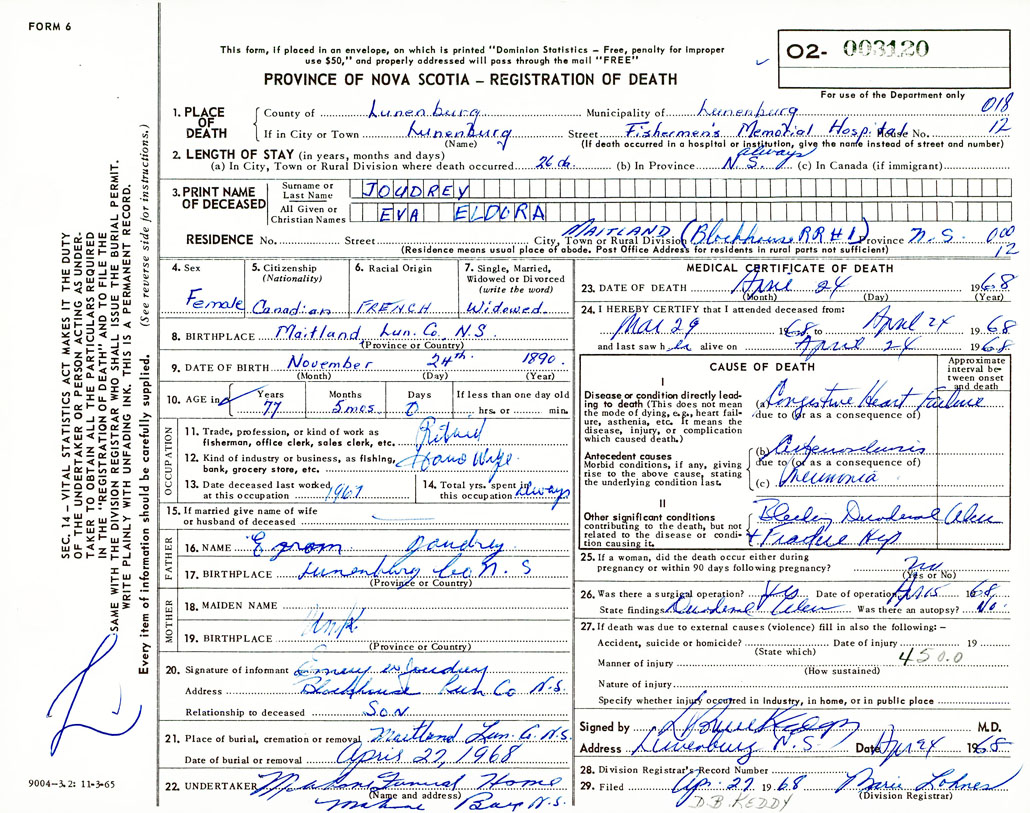 FORM 6
This form, if placed in an envelope, on which is printed "Dominion Statistics – Free, penalty for improper
use $50," and properly addressed will pass through the mail "FREE"
PROVINCE OF NOVA SCOTIA – REGISTRATION OF DEATH
02- 003120
For use of the Department only
018
12
1. PLACE OF DEATH
County of Lunenburg Municipality of Lunenburg
If in City or Town Lunenburg Street Fishermen's Memorial Hospital House No.
(Name) (If death occurred in a hospital or institution, give the name instead of street and number)
2. LENGTH OF STAY (in years, months and days)
(a) In City, Town or Rural Division where death occurred 26 da. (b) In Province N.S. always (c) In Canada (if immigrant)
3. PRINT NAME OF DECEASED
Surname or Last Name JOUDREY
All Given or Christian Names EVA ELDORA
RESIDENCE No. Street City, Town or Rural Division MAITLAND (Blockhouse RR#1) Province N.S. 000
(Residence means usual place of abode. Post Office Address for residents in rural parts not sufficient) 12
4. Sex
Female
5. Citizenship
(Nationality)
Canadian
6. Racial Origin
FRENCH
7. Single, Married, Widowed or Divorced
(write the word)
Widowed
8. BIRTHPLACE Maitland Lun. Co. N.S.
(Province or Country)
9. DATE OF BIRTH November 24th 1890
(Month) (Day) (Year)
10. AGE in Years Months Days If less than one day old
77 5 mos. 0 hrs. or min.
OCCUPATION
11. Trade, profession, or kind of work as
fisherman, office clerk, sales clerk, etc. Retired
12. Kind of industry or business, as fishing,
bank, grocery store, etc. House Wife
13. Date deceased last worked
at this occupation 1967
14. Total yrs. spent in
this occupation always
15. If married give name of wife
or husband of deceased
FATHER
16. NAME Joudrey
17. BIRTHPLACE Lunenburg Co. N.S
(Province or Country)
MOTHER
18. MAIDEN NAME
Unk.
19. BIRTHPLACE
(Province or Country)
20. Signature of informant Joudrey
Address Blockhouse Lun. Co N.S.
Relationship to deceased SON
21. Place of burial, cremation or removal Maitland Lun. Co. N.S.
Date of burial or removal April 27, 1968
22. UNDERTAKER Mahone Funeral Home
(Name and address) Mahone Bay N.S.
MEDICAL CERTIFICATE OF DEATH
23. DATE OF DEATH April 24 1968
(Month) (Day) (Year)
24. I HEREBY CERTIFY that I attended deceased from:
Mar 29 1968 to April 24 1968
and last saw her alive on April 24 1968
CAUSE OF DEATH
Approximate interval between onset and death
I
Disease or condition directly leading to death (This does not mean the mode of dying, e.g., heart failure, asthenia, etc. It means the disease, injury, or complication which caused death.)
(a) Congestive Heart Failure
due to (or as a consequence of)
Antecedent causes
Morbid conditions, if any, giving rise to the above cause, stating the underlying condition last.
(b) Arteriosclerosis
due to (or as a consequence of)
(c) Pneumonia
II
Other significant conditions
contributing to the death, but not related to the disease or condition causing it.
Bleeding Duodenal Ulcer
& Fracture Hip
25. If a woman, did the death occur either during
pregnancy or within 90 days following pregnancy? No
(Yes or No)
26. Was there a surgical operation? yes Date of operation 1968
State findings Duodenal Ulcer Was there an autopsy? No.
27. If death was due to external causes (violence) fill in also the following: –
Accident, suicide or homicide? Date of injury 19
(State which)
Manner of injury 450.0
(How sustained)
Nature of injury
Specify whether injury occurred in Industry, in home, or in public place
Signed by M.D.
Address Lunenburg N.S. Date Apr 24 1968
28. Division Registrar's Record Number
29. Filed Apr. 27 1968 Marie Lohnes
(Division Registrar)
D.B. KEDDY
SEC. 14 – VITAL STATISTICS ACT MAKES IT THE DUTY
OF THE UNDERTAKER OR PERSON ACTING AS UNDER-
TAKER TO OBTAIN ALL THE PARTICULARS REQUIRED
IN THE "REGISTRATION OF DEATH" AND TO FILE THE
SAME WITH THE DIVISION REGISTRAR WHO SHALL ISSUE THE BURIAL PERMIT.
WRITE PLAINLY WITH UNFADING INK. THIS IS A PERMANENT RECORD.
Every item of information should be carefully supplied. (See reverse side for instructions.)
9004-3.2: 11-3-65